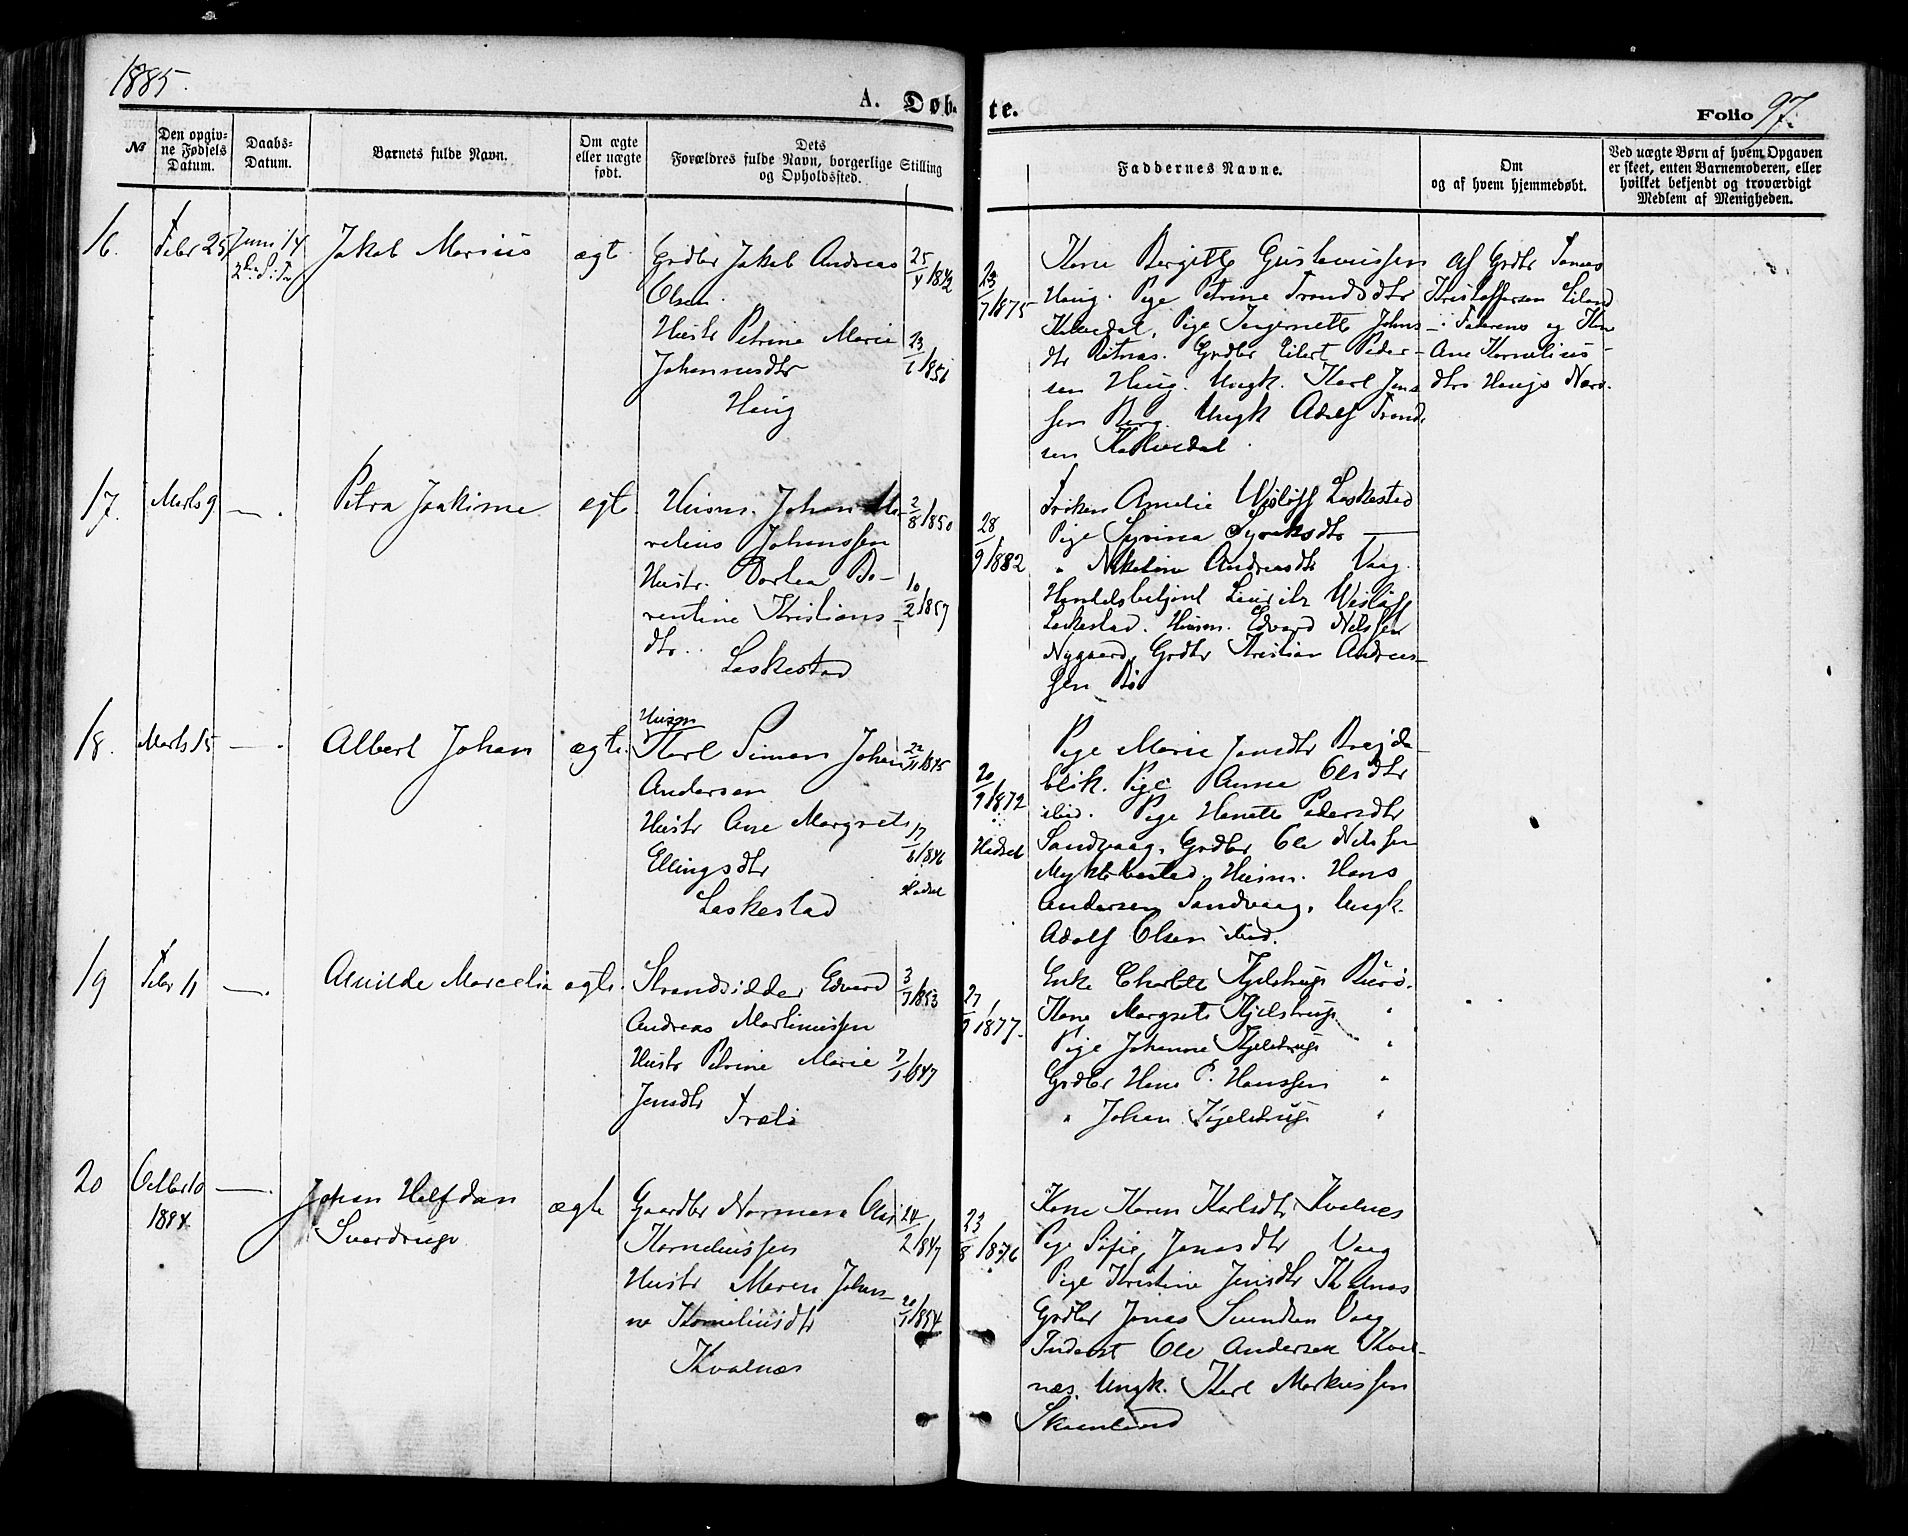 1885.
A. Døb-
te.
Folio 97.
№
Den opgiv-
ne Fødsels
Datum.
Daabs-
Datum.
Barnets fulde Navn.
Om ægte
eller uægte
født.
Dets
Forældres fulde Navn, borgerlige Stilling
og Opholdssted.
Faddernes Navne.
Om
og af hvem hjemmedøbt.
Ved uægte Børn af hvem Opgaven
er skeet, enten Barnemoderen, eller
hvilket bekjendt og troværdigt
Medlem af Menigheden.
16.
Febr 25
Juni 14
Jakob Marius
ægt.
Grdbr Jakob Andreas
Olsen
Hustr Petrine Marie
Johannesdtr
Haug
25/4 1842
23/1 1856
23/7 1875
Kone Bergitte Gustavussen
Haug. Pige Petrine Trondsdtr
Kalvedal, Pige Ingernette Johns
dtr Rotnas. Grdbr Eilert Peder-
sen Haug. Ungk. Karl Jens
sen Berg. Ungk Adolf Trond
sen Kalvedal.
Af Grdbr Tomas
Kristoffersen Eiland
i Faderens og Kon
Ane Kornelius-
dtrs Haugs Nærv.
17.
Marts 9
— .
Petra Joakime
ægte
Husm. Johan
relius Johanssen
Hustr. Dortea Bo-
rentine Kristians
dtr.
Laskestad
2/8 1850
10/2 1857
28/9 1882
Frøken Amelie Wisløff Laskestad
Pige Syrina Syvertsdtr —
" Nikoline Andreasdtr Vaag.
Handelsbetjent Lauritz Wisløff
Laskestad. Husm. Edvard Nilssen
Nygaard, Grdbr Kristian Andreas-
sen Bø
18.
Marts 15
— .
Albert Johan
ægte.
Husm
Karl Simon Johan
Andersen
Hustr Ane Margrete
Ellingsdtr
Laskestad
22/11 1845
17/6 1846
Hadsel
20/9 1872
Hadsel
Pige Marie Jonsdtr Brejda-
blik. Pige Anne Olsdtr
ibid. Pige Hanette Pedersdtr
Sandvaag, Grdbr Ole Nilssen
Myklebostad. Husm. Hans
Andersen Sandvaag, Ungk.
Adolf Olsen ibid.
19
Febr 11
— .
Alvilde Marcelia
ægte.
Strandsidder Edvard
Andreas Martinussen
Hustr Petrine Marie
Jensdtr
Træli
3/7 1853
7/1 1847
27/9 1877.
Enke Charlotte Kjelstrup Burø.
Kone Margrete Kjelstrup "
Pige Johanne Kjelstrup "
Grdbr Hans P. Hanssen "
" Johan Kjelstrup "
20
Octbr 10
1884.
— .
Johan Halfdan
Sverdrup
ægte
Gaardbr Normann Olai
Korneliussen
Hustr Maren Johan-
ne Korneliusdtr
Kvalnæs
24/2 1847
20/1 1854
23/8 1876
Kone Karen Karlsdtr Kvalnæs
Pige Sofie Jonasdtr Vaag
Pige Kristine Jensdtr Kvalnæs
Grdbr Jonas Svendsen Vaag
Inderst Ole Andersen Kval-
næs. Ungk. Karl Markussen
Skaanland